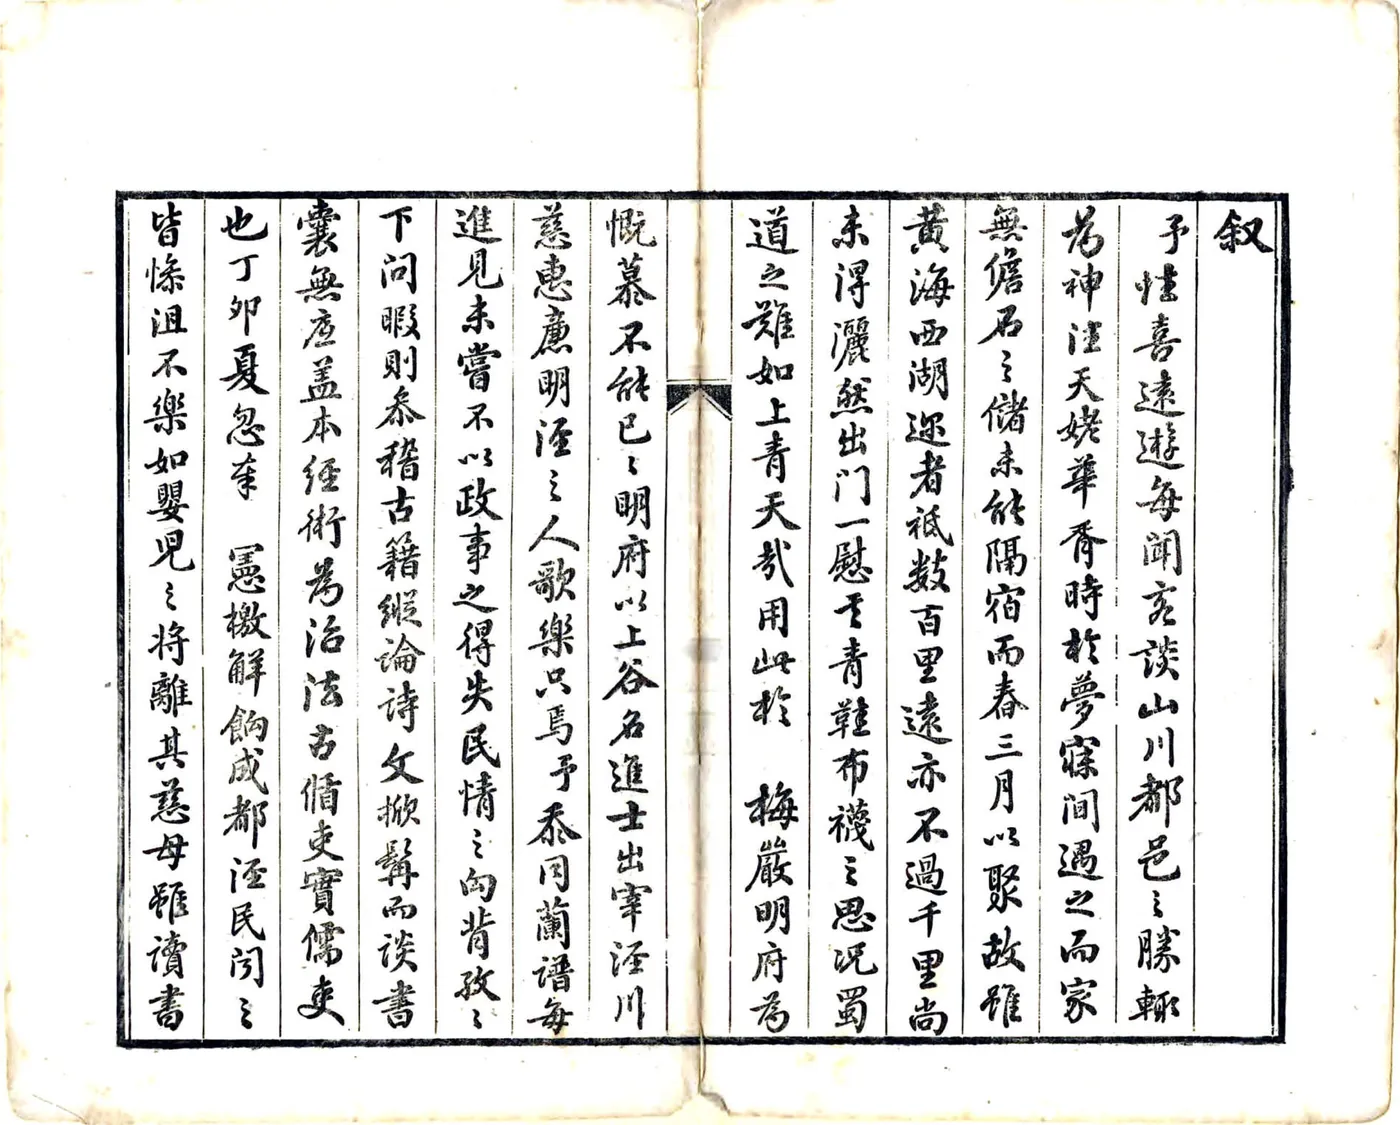 叙
予性喜遠遊每聞客談山川都邑之勝輒
為神洼天姥華胥時於夢寐間遇之而家
無儋石之儲未能隔宿而春三月以聚故雖
黃海西湖邇者袛数百里遠亦不過千里尚
未得灑然出门一慰其青鞋布襪之思况蜀
道之難如上青天哉用此於 梅巖明府為
慨慕不能已已明府以上谷名進士出宰涇川
慈惠廉明涇之人歌樂只焉予忝同蘭譜每
進見未嘗不以政事之得失民情之向背孜孜
下问暇則叅稽古籍縱論詩文掀髯而談書
囊無底盖本經術為治法古循吏實儒吏
也丁卯夏忽奉 憲檄解餉成都涇民闻之
皆慘沮不樂如嬰児之将離其慈母雖讀書